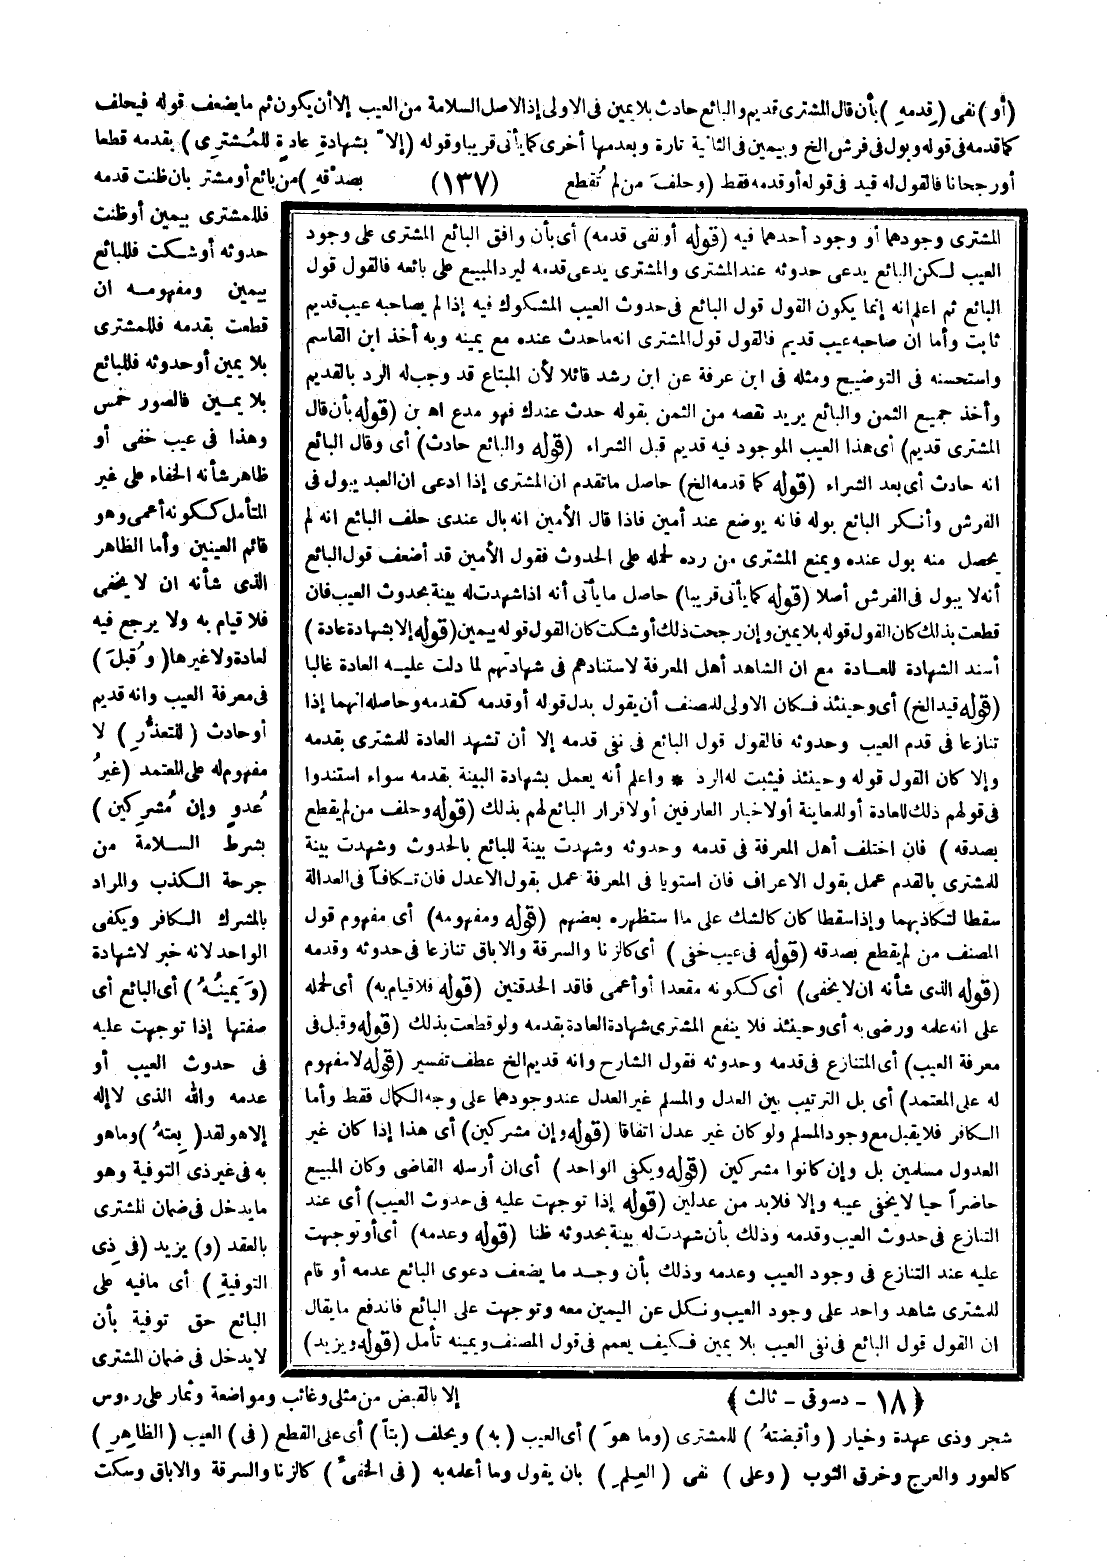 (أو) نفى (قِدمهِ) بأن قال المشترى قديم والبائع حادث بلا يمين فى الاولى إذ الاصل السلامة من العيب إلا أن يكون ثم ما يضعف قوله فيحلف
كما قدمه فى قوله وبول فى فرش الخ وبيمين فى الثانية تارة وبعدمها أخرى كما يأتى قريبا وقوله (إلا بشهادةِ عادةٍ للمُشترِى) بقدمه قطعا
أو رجحانا فالقول له قيد فى قوله أو قدمه فقط (وحلفَ من لم تُقطع (١٣٧) بصدْقهِ) من بائع أو مشتر بان ظنت قدمه
فللمشترى بيمين أو ظنت
حدوثه أو شكت فللبائع
بيمين ومفهومه ان
قطعت بقدمه فللمشترى
بلا يمين أو حدوثه فللبائع
بلا يمين فالصور خمس
وهذا فى عيب خفى أو
ظاهر شأنه الخفاء على غير
المتأمل ككونه أعمى وهو
قائم العينين وأما الظاهر
الذى شأنه ان لا يخفى
فلا قيام به ولا يرجع فيه
لعادة ولا غيرها (وقُبلَ)
فى معرفة العيب وانه قديم
أو حادث (للتعذُّرِ) لا
مفهوم له على المعتمد (غيرُ
عُدولٍ وإن مُشرِكين)
بشرط السلامة من
جرحة الكذب والمراد
بالمشرك الكافر ويكفى
الواحد لانه خبر لا شهادة
(وَيَمينُهُ) أى البائع أى
صفتها إذا توجهت عليه
فى حدوث العيب أو
عدمه والله الذى لا إله
إلا هو لقد (بِعتهُ) وما هو
به فى غير ذى التوفية وهو
ما يدخل فى ضمان المشترى
بالعقد (و) يزيد (فى ذِى
التوفيةِ) أى ما فيه على
البائع حق توفية بأن
لا يدخل فى ضمان المشترى
المشترى وجودهما أو وجود أحدهما فيه (قوله أو نفى قدمه) أى بأن وافق البائع المشترى على وجود
العيب لكن البائع يدعى حدوثه عند المشترى والمشترى يدعى قدمه ليرد المبيع على بائعه فالقول قول
البائع ثم اعلم انه إنما يكون القول قول البائع فى حدوث العيب المشكوك فيه إذا لم يصاحبه عيب قديم
ثابت وأما ان صاحبه عيب قديم فالقول قول المشترى انه ما حدث عنده مع يمينه وبه أخذ ابن القاسم
واستحسنه فى التوضيح ومثله فى ابن عرفة عن ابن رشد قائلا لأن المبتاع قد وجب له الرد بالقديم
وأخذ جميع الثمن والبائع يريد نقصه من الثمن بقوله حدث عندك فهو مدع اه بن (قوله بأن قال
المشترى قديم) أى هذا العيب الموجود فيه قديم قبل الشراء (قوله والبائع حادث) أى وقال البائع
انه حادث أى بعد الشراء (قوله كما قدمه الخ) حاصل ما تقدم ان المشترى إذا ادعى ان العبد يبول فى
الفرش وأنكر البائع بوله فانه يوضع عند أمين فاذا قال الأمين انه بال عندى حلف البائع انه لم
يحصل منه بول عنده ويمنع المشترى من رده لحمله على الحدوث فقول الأمين قد أضعف قول البائع
أنه لا يبول فى الفرش أصلا (قوله كما يأتى قريبا) حاصل ما يأتى أنه اذا شهدت له بينة بحدوث العيب فان
قطعت بذلك كان القول قوله بلا يمين وإن رجحت ذلك أو شكت كان القول قوله بيمين (قوله إلا بشهادة عادة)
أسند الشهادة للعادة مع ان الشاهد أهل المعرفة لاستنادهم فى شهادتهم لما دلت عليه العادة غالبا
(قوله قيد الخ) أى وحينئذ فكان الاولى للمصنف أن يقول بدل قوله أو قدمه كقدمه وحاصله انهما إذا
تنازعا فى قدم العيب وحدوثه فالقول قول البائع فى نفى قدمه إلا أن تشهد العادة للمشترى بقدمه
وإلا كان القول قوله وحينئذ فيثبت له الرد * واعلم أنه يعمل بشهادة البينة بقدمه سواء استندوا
فى قولهم ذلك للعادة أو للمعاينة أو لاخبار العارفين أو لاقرار البائع لهم بذلك (قوله وحلف من لم يقطع
بصدقه) فان اختلف أهل المعرفة فى قدمه وحدوثه وشهدت بينة للبائع بالحدوث وشهدت بينة
للمشترى بالقدم عمل بقول الاعراف فان استويا فى المعرفة عمل بقول الاعدل فان تكافآ فى العدالة
سقطا لتكاذبهما وإذا سقطا كان كالشك على ما استظهره بعضهم (قوله ومفهومه) أى مفهوم قول
المصنف من لم يقطع بصدقه (قوله فى عيب خفى) أى كالزنا والسرقة والاباق تنازعا فى حدوثه وقدمه
(قوله الذى شأنه ان لا يخفى) أى ككونه مقعدا أو أعمى فاقد الحدقتين (قوله فلا قيام به) أى لحمله
على انه علمه ورضى به أى وحينئذ فلا ينفع المشترى شهادة العادة بقدمه ولو قطعت بذلك (قوله وقبل فى
معرفة العيب) أى المتنازع فى قدمه وحدوثه فقول الشارح وانه قديم الخ عطف تفسير (قوله لا مفهوم
له على المعتمد) أى بل الترتيب بين العدل والمسلم غير العدل عند وجودهما على وجه الكمال فقط وأما
الكافر فلا يقبل مع وجود المسلم ولو كان غير عدل اتفاقا (قوله وإن مشركين) أى هذا إذا كان غير
العدول مسلمين بل وإن كانوا مشركين (قوله ويكفى الواحد) أى ان أرسله القاضى وكان المبيع
حاضراً حيا لا يخفى عيبه وإلا فلا بد من عدلين (قوله إذا توجهت عليه فى حدوث العيب) أى عند
التنازع فى حدوث العيب وقدمه وذلك بأن شهدت له بينة بحدوثه ظنا (قوله وعدمه) أى أو توجهت
عليه عند التنازع فى وجود العيب وعدمه وذلك بأن وجد ما يضعف دعوى البائع عدمه أو قام
للمشترى شاهد واحد على وجود العيب ونكل عن اليمين معه وتوجهت على البائع فاندفع ما يقال
ان القول قول البائع فى نفى العيب بلا يمين فكيف يعمم فى قول المصنف ويمينه تأمل (قوله ويزيد)
(١٨ - دسوقى - ثالث) إلا بالقبض من مثلى وغائب ومواضعة وثمار على رءوس
شجر وذى عهدة وخيار (وأقبضتهُ) للمشترى (وما هوَ) أى العيب (به) ويحلف (بتاً) أى على القطع (فى) العيب (الظاهِرِ)
كالعور والعرج وخرق الثوب (وعلى) نفى (العِلمِ) بان يقول وما أعلمه به (فى الخفىّ) كالزنا والسرقة والاباق وسكت